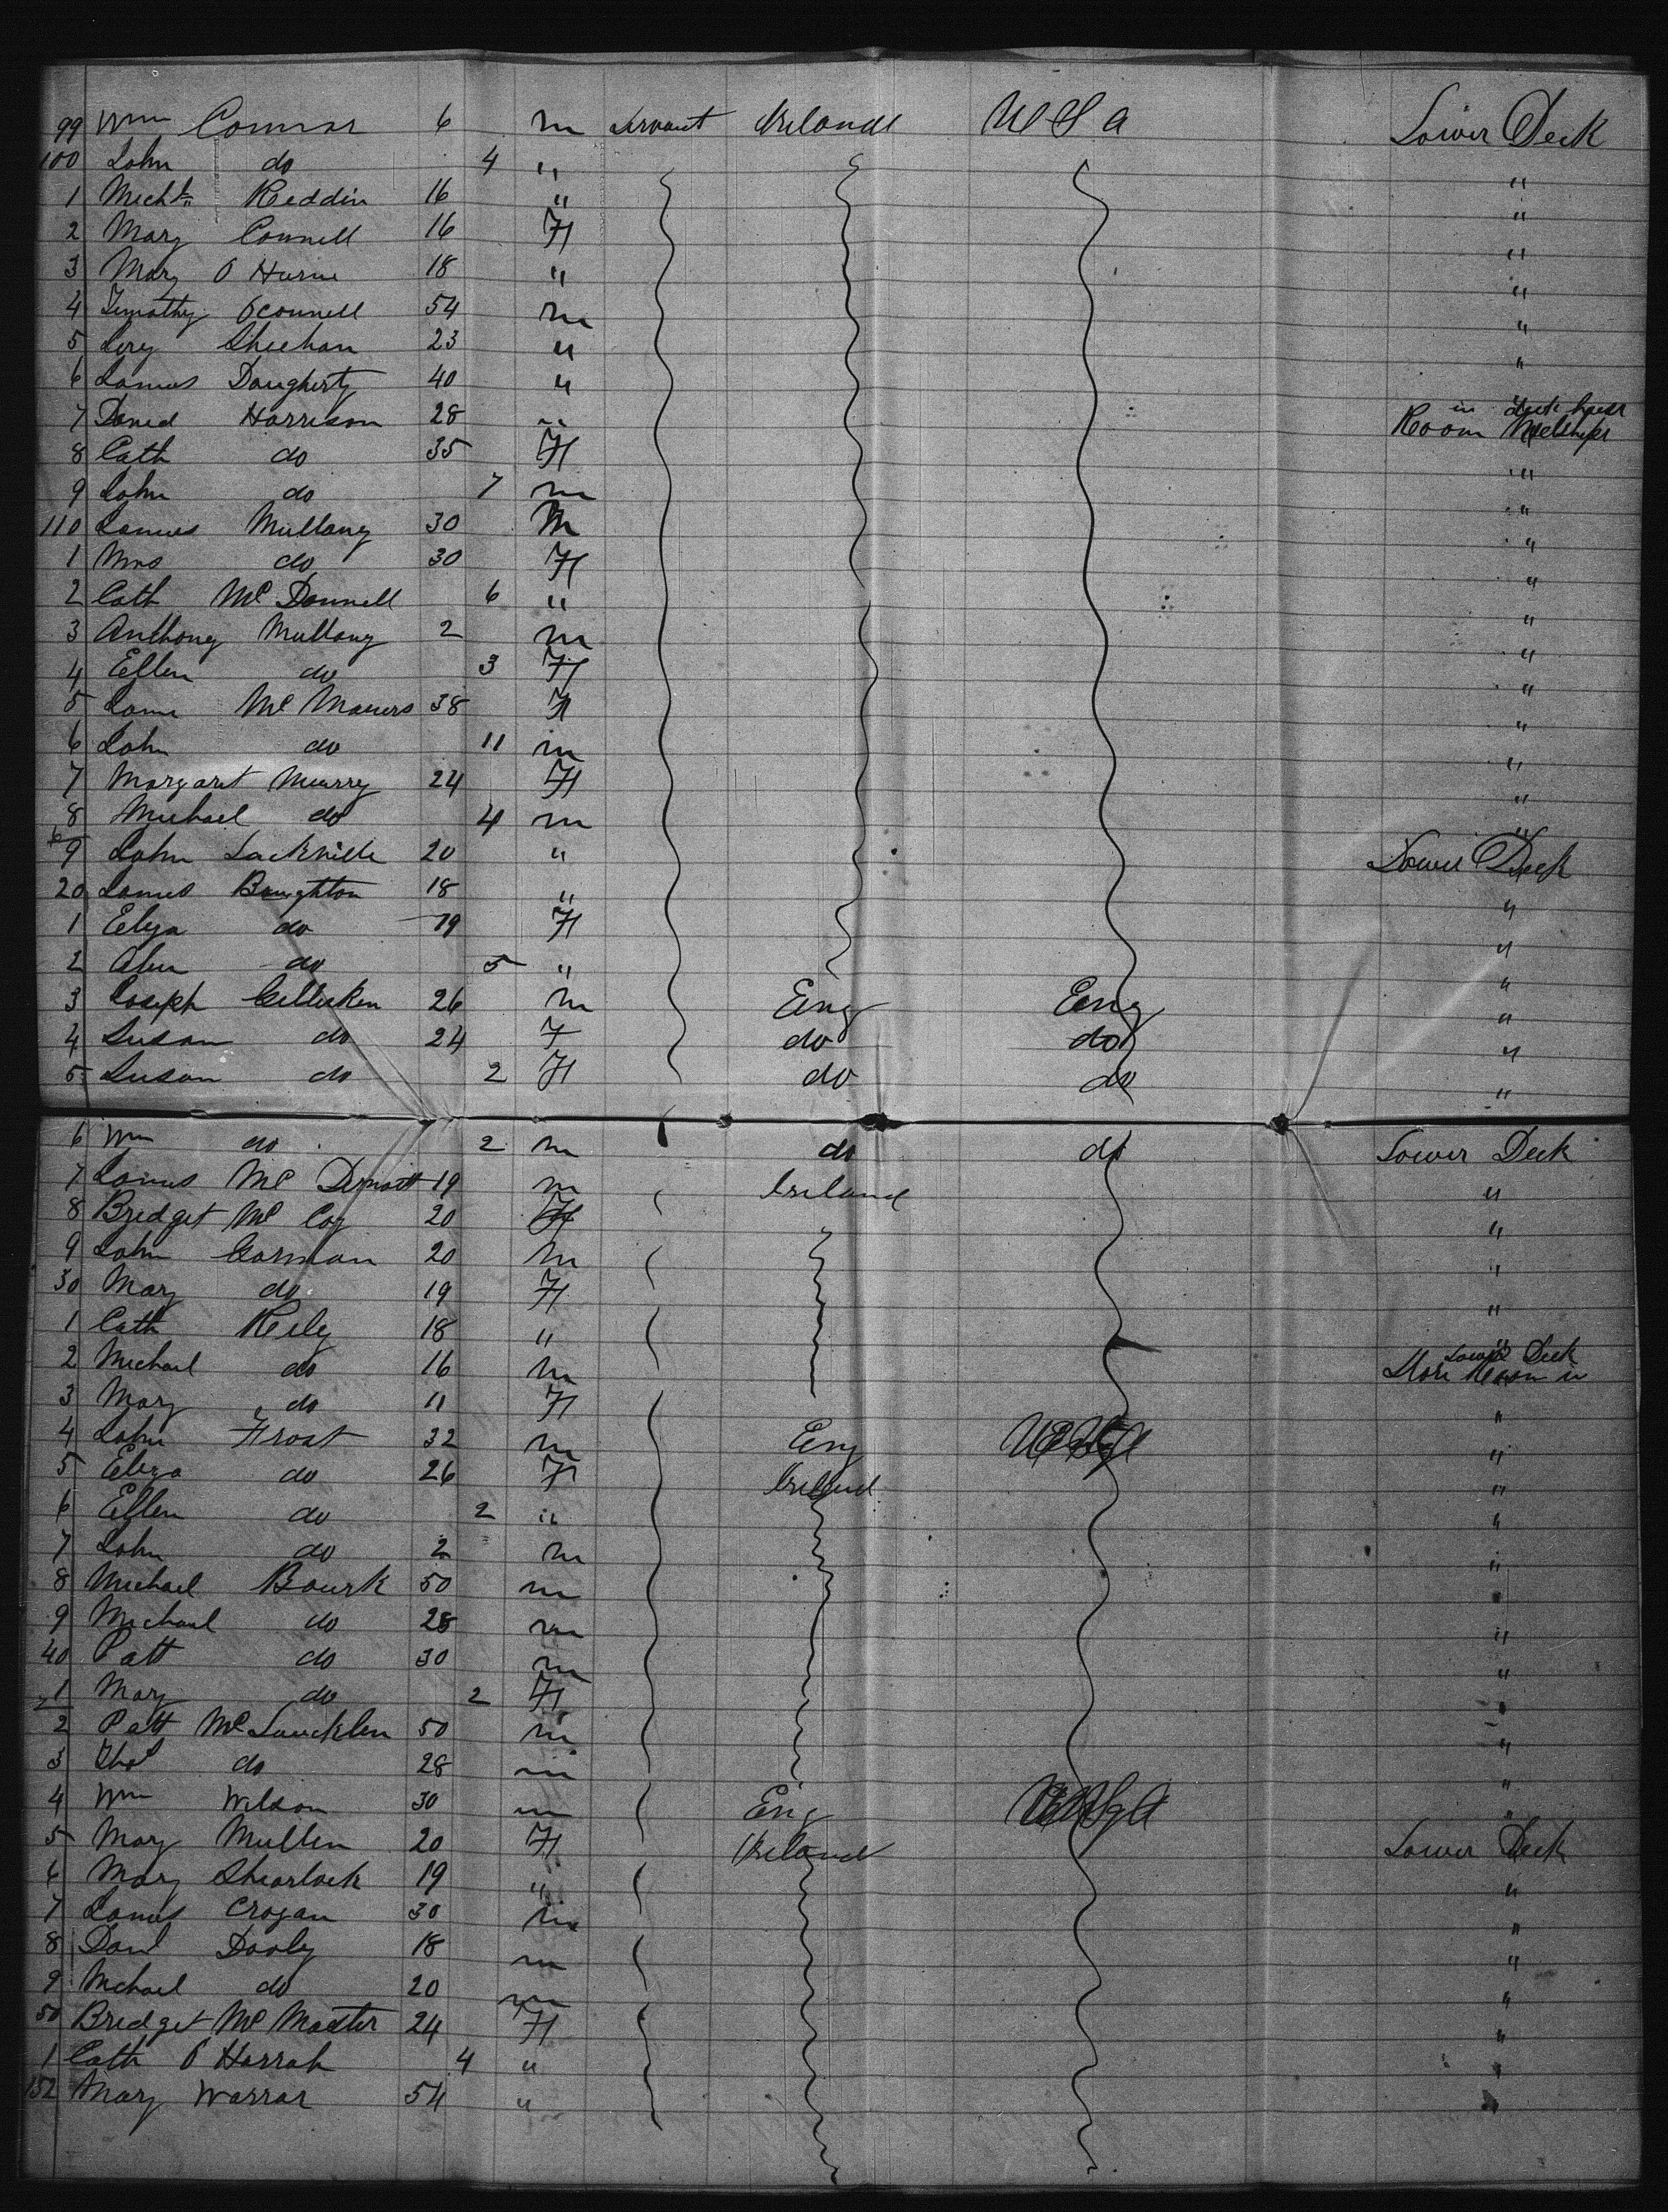 99 Wm Connor 6 m Servant Ireland U S a Lower Deck
100 John do 4 " "
1 Mich Reddin 16 " "
2 Mary Connell 16 F "
3 Mary O Hurne 18 " "
4 Timothy Oconnell 54 m "
5 Sheehan 23 " "
6 James Daugherty 40 " "
7 Harrison 28 " Room in deck house
8 Cath do 35 F "
9 John do 7 m "
110 James Mullany 30 M "
1 Mrs do 30 F "
2 Cath Mc Donnell 6 " "
3 Anthony Mullany 2 m "
4 Ellen do 3 F "
5 Jane Mc 38 F "
6 John do 11 m "
7 Margaret Murry 24 F "
8 Michael do 4 m "
9 John Sackville 20 " Lower Deck
20 James Boughton 18 " "
1 Eliza do 19 F "
2 do 5 " "
3 Joseph 26 m Eng Eng "
4 Susan do 24 F do do "
5 Susan do 2 F do do "
6 Wm do 2 m do do Lower Deck
7 James Mc Dermott 19 m Ireland "
8 Bridget Mc Coy 20 F "
9 John Gorman 20 m "
30 Mary do 19 F "
1 Cath Reily 18 " "
2 Michael do 16 m Store Room in Lower Deck
3 Mary do 11 F "
4 John Frost 32 m Eng "
5 Eliza do 26 F Ireland "
6 Ellen do 2 " "
7 John do 2 m "
8 Michael Bourk 50 m "
9 Michael do 28 m "
40 Patt do 30 m "
1 Mary do 2 F "
2 Patt Mc Laucklen 50 m "
3 Thos do 28 m "
4 Wm Wilson 30 m Eng "
5 Mary Mullen 20 F Ireland Lower Deck
6 Mary Shearlock 19 " "
7 James Crogan 30 m "
8 Danl Dooly 18 m "
9 Michael do 20 m "
50 Bridget Mc Master 24 F "
1 Cath O Harrah 4 " "
152 Mary Warrar 54 " "